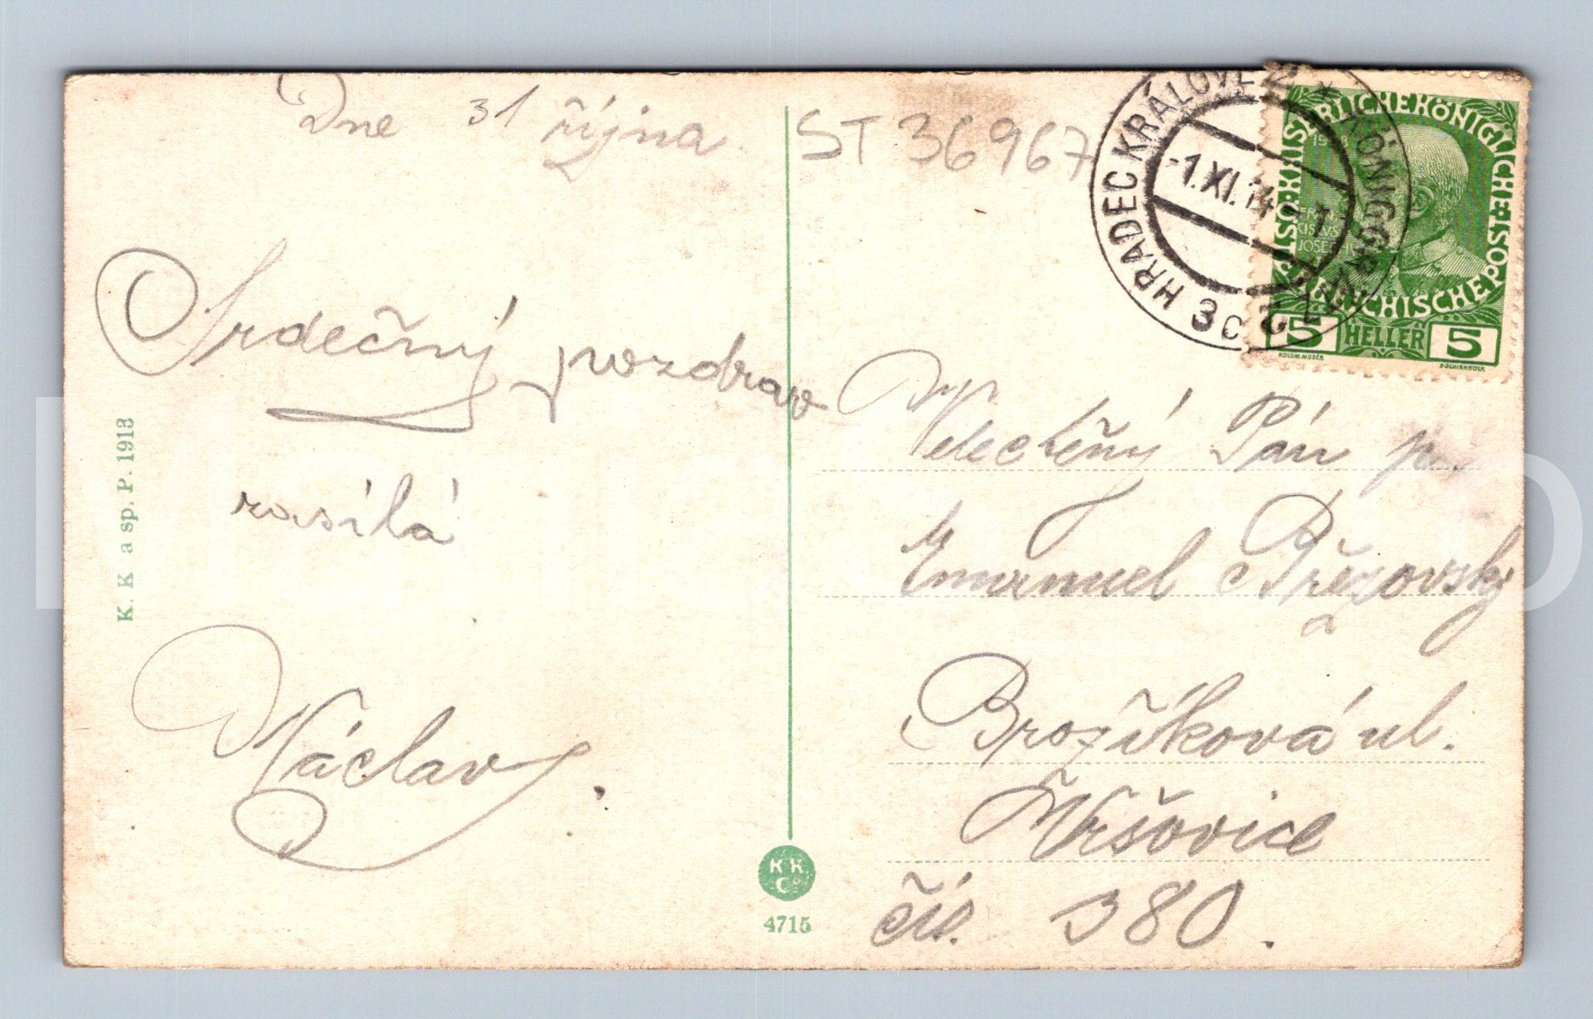 Dne 31 října
ST 36967
Srdečný pozdrav
zasílá
Václav.
K. K. a sp. P. 1913
K K
Co
4715
HRADEC KRÁLOVÉ 2 * KÖNIGGRÄTZ 2
-1.XI.14
3c
KAISERLICHE KÖNIGLICHE
ÖSTERREICHISCHE POST
1908
5 HELLER 5
KOLOM. MOSER
F. SCHIRNBÖCK
Velectěný Pán p.
Emanuel Břēzovský
Brožíková ul.
Vršovice
čís. 380.